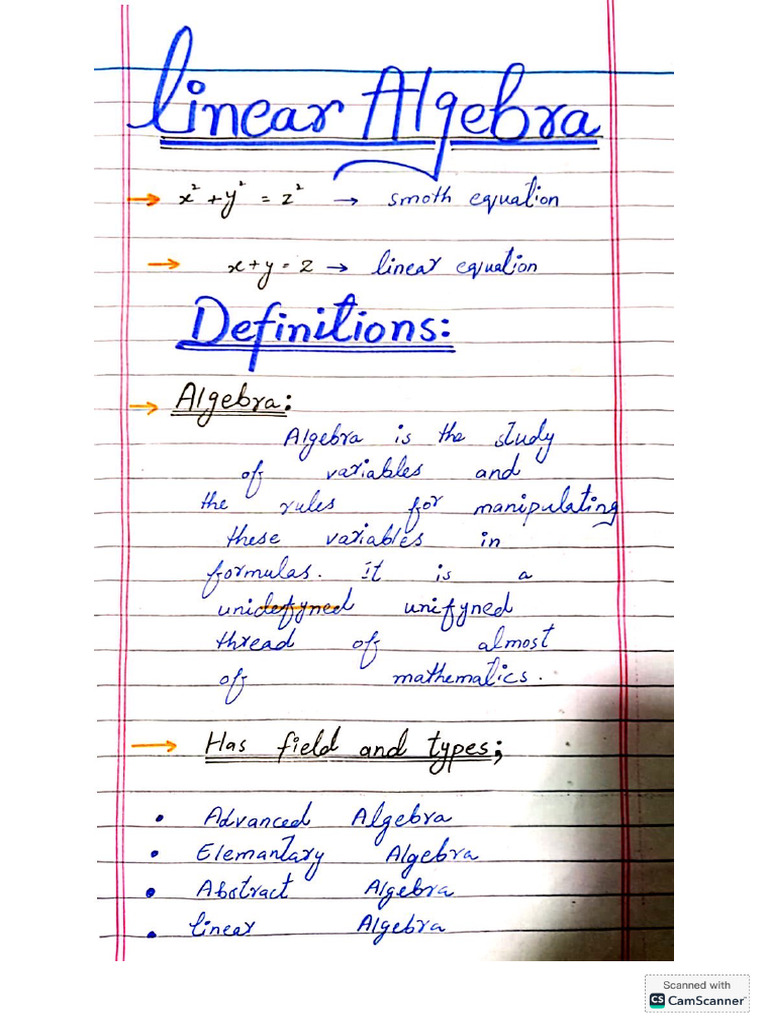 Linear Algebra
→ x² + y² = z² → smoth equation
→ x + y = z → linear equation
Definitions:
→ Algebra:
Algebra is the study
of variables and
the rules for manipulating
these variables in
formulas. It is a
unidefyned unifyned
thread of almost
of mathematics.
→ Has field and types;
• Advanced Algebra
• Elemantary Algebra
• Abstract Algebra
• linear Algebra
Scanned with
CS CamScanner